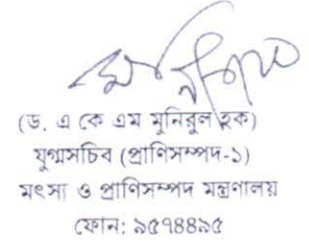 (ড. এ কে এম মুনিরুল হক)
যুগ্মসচিব (প্রাণিসম্পদ-১)
মৎস্য ও প্রাণিসম্পদ মন্ত্রণালয়
ফোন: ৯৫৭৪৪৯৫